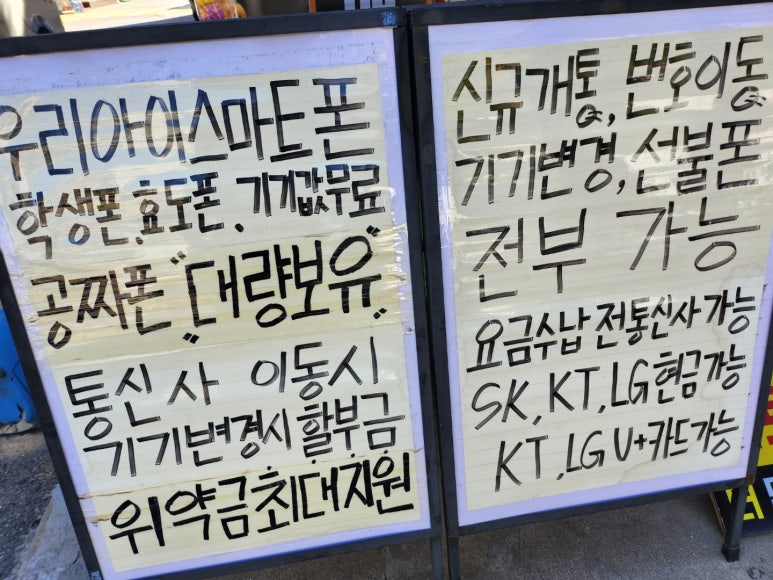 우리아이스마트폰
학생폰, 효도폰, 기기값무료
공짜폰 "대량보유"
통신사 이동시
기기변경시 할부금
위약금최대지원
신규개통, 번호이동
기기변경, 선불폰
전부 가능
요금수납 전통신사 가능
SK, KT, LG 현금가능
KT, LG U+카드가능